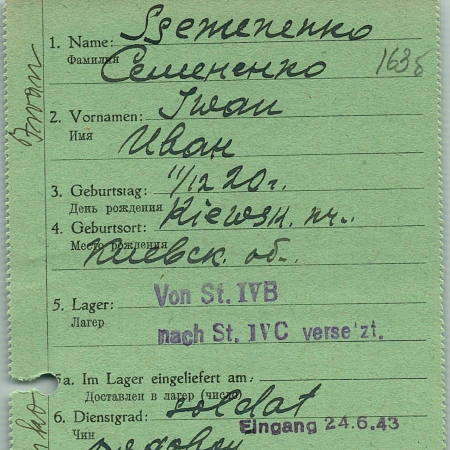 1. Name: Ssemenenko
Фамилия
Семененко 1636
2. Vornamen: Iwan
Имя
Иван
3. Geburtstag: 11/12 20 г.
День рождения
4. Geburtsort: Kiewsk.
Место рождения
Киевск. об.
5. Lager: Von St. IVB
Лагер
nach St. IVC verse'zt.
5a. Im Lager eingeliefert am:
Доставлен в лагер (число)
6. Dienstgrad: soldat
Чин
Eingang 24.6.43
Iwan
nko